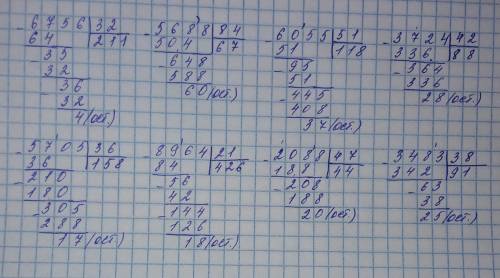 - 6756 | 32
64 | 211
- 35
32
- 36
32
4(ост.)
- 5688 | 84
504 | 67
- 648
588
60(ост.)
- 6055 | 51
51 | 118
- 95
51
- 445
408
37(ост.)
- 3724 | 42
336 | 88
- 364
336
28(ост.)
- 5705 | 36
36 | 158
- 210
180
- 305
288
17(ост.)
- 8964 | 21
84 | 426
- 56
42
- 144
126
18(ост.)
- 2088 | 47
188 | 44
- 208
188
20(ост.)
- 3483 | 38
342 | 91
- 63
38
25(ост.)